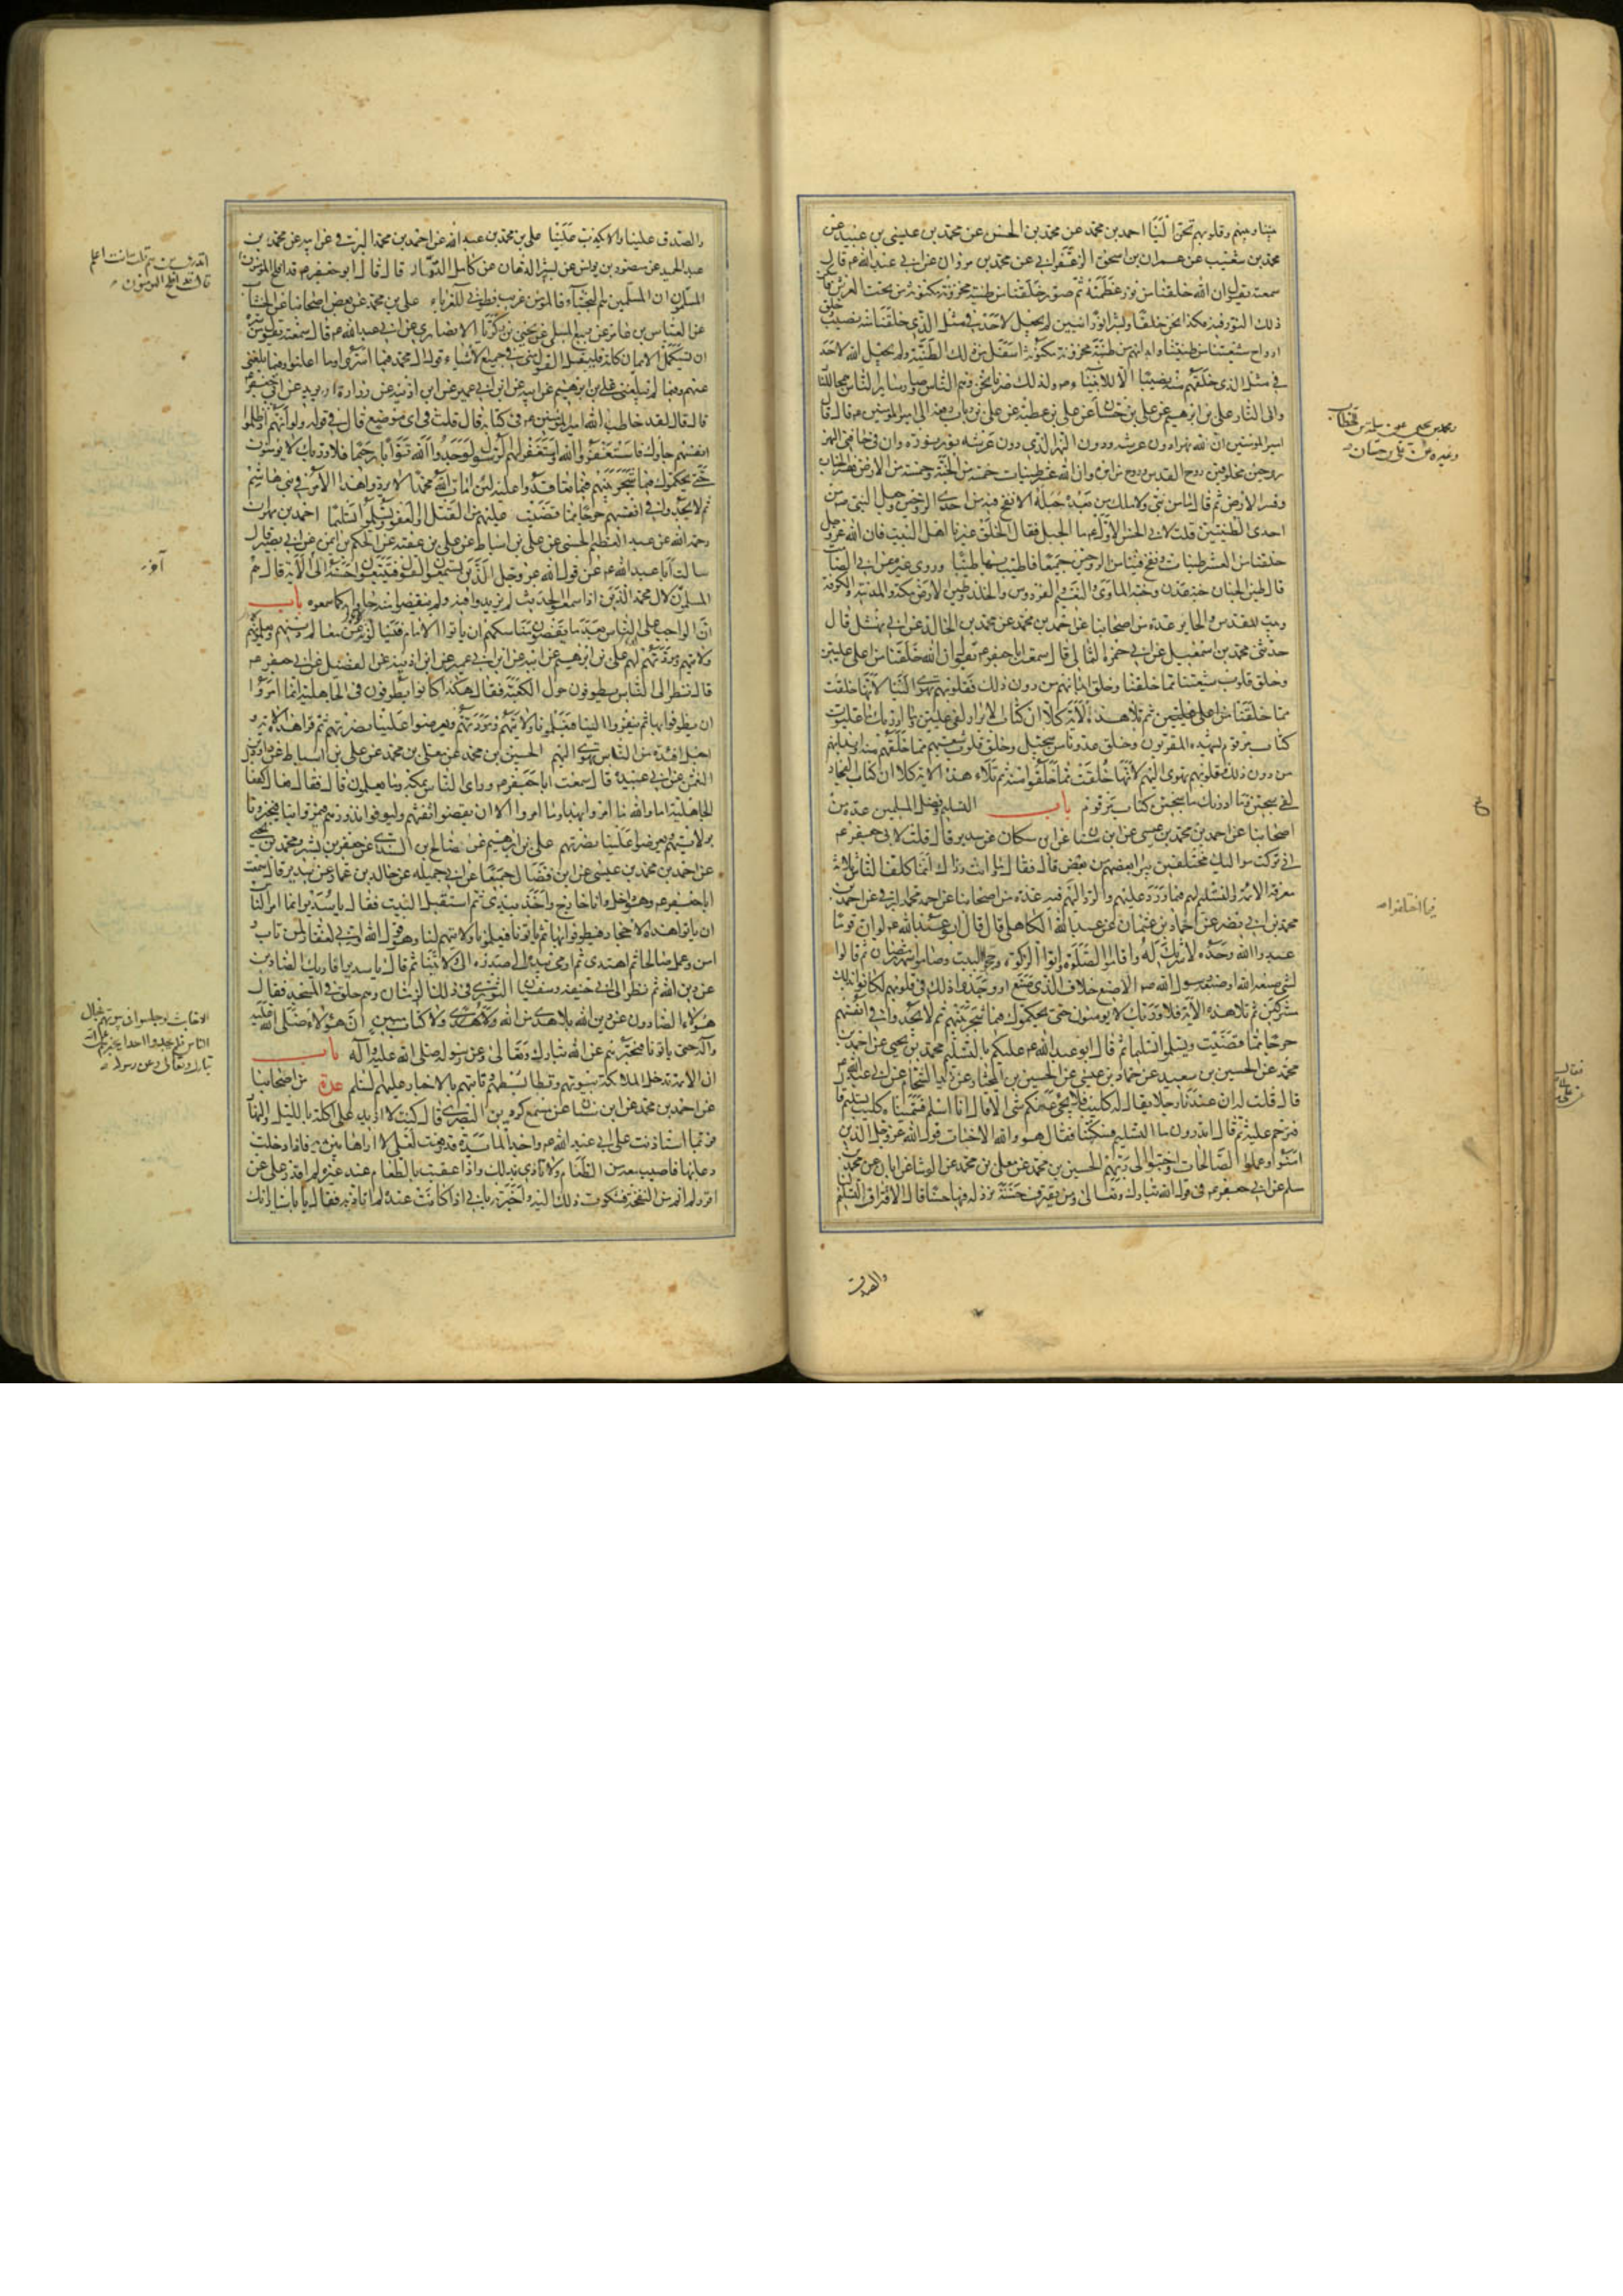 بيننا وبينهم وقلوبهم تحن الينا احمد بن محمد عن محمد بن الحسن عن محمد بن عيسى بن عبيد عن
محمد بن شعيب عن عمران بن اسحق الزعفراني عن محمد بن مروان عن ابي عبد الله ع قال
سمعته يقول ان الله خلقنا من نور عظمته ثم صور خلقنا من طينة مخزونة مكنونة من تحت العرش فاسكن
ذلك النور فيه فكنا نحن خلقا وبشرا نورانيين لم يجعل لاحد في مثل الذي خلقنا منه نصيبا وخلق
ارواح شيعتنا من طينتنا وابدانهم من طينة مخزونة مكنونة اسفل من ذلك الطينة ولم يجعل الله لاحد
في مثل الذي خلقهم منه نصيبا الا للانبياء ولذلك صرنا نحن وهم الناس وصار ساير الناس همج للنار
والى النار علي بن ابرهيم عن علي بن حسان عن علي بن عطية عن علي بن رئاب رفعه الى امير المؤمنين ع قال قال
امير المؤمنين ان لله نهرا دون عرشه ودون النهر الذي دون عرشه نور نوره وان في حافتي النهر
روحين مخلوقين روح القدس وروح من امره وان لله عشر طينات خمسة من الجنة وخمسة من الارض ففسر الجنان
وفسر الارض ثم قال ما من نبي ولا ملك من بعده جبله الا نفخ فيه من احدى الروحين وجعل النبي ص من
احدى الطينتين قلت لابي الحسن الاول ع ما الجبل فقال الخلق غيرنا اهل البيت فان الله عز وجل
خلقنا من العشر طينات ونفخ فينا من الروحين جميعا فاطيب بها طيبا وروى غيره عن ابي الصامت
قال طين الجنان جنة عدن وجنة المأوى والنعيم والفردوس والخلد وطين الارض مكة والمدينة والكوفة
وبيت المقدس والحاير عدة من اصحابنا عن احمد بن محمد عن محمد بن خالد عن ابي نهشل قال
حدثني محمد بن اسمعيل عن ابي حمزة الثمالي قال سمعت ابا جعفر ع يقول ان الله خلقنا من اعلى عليين
وخلق قلوب شيعتنا مما خلقنا وخلق ابدانهم من دون ذلك فقلوبهم تهوى الينا لانها خلقت
مما خلقنا ثم تلا هذه الآية كلا ان كتاب الابرار لفي عليين وما ادريك ما عليون
كتاب مرقوم يشهده المقربون وخلق عدونا من سجيل وخلق قلوب شيعتهم مما خلقهم منه وابدانهم
من دون ذلك فقلوبهم تهوى اليهم لانها خلقت مما خلقوا منه ثم تلا هذه الاية كلا ان كتاب الفجار
لفي سجين وما ادريك ما سجين كتاب مرقوم باب التسليم وفضل المسلمين عدة من
اصحابنا عن احمد بن محمد بن عيسى عن ابن سنان عن ابن مسكان عن سدير قال قلت لابي جعفر ع
اني تركت مواليك مختلفين يبرأ بعضهم من بعض قال فقال وما انت وذاك انما كلف الناس ثلاثة
معرفة الائمة والتسليم لهم فيما ورد عليهم والرد اليهم فيما عدة من اصحابنا عن احمد بن محمد البرقي عن احمد بن
محمد بن ابي نصر عن حماد بن عثمان عن عبد الله الكاهلي قال قال ابو عبد الله ع لو ان قوما
عبدوا الله وحده لا شريك له واقاموا الصلوة واتوا الزكوة وحجوا البيت وصاموا شهر رمضان ثم قالوا
لشي صنعه الله او صنعه رسول الله ص الا صنع خلاف الذي صنع او وجدوا ذلك في قلوبهم لكانوا بذلك
مشركين ثم تلا هذه الآية فلا وربك لا يؤمنون حتى يحكموك فيما شجر بينهم ثم لا يجدوا في انفسهم
حرجا مما قضيت ويسلموا تسليما ثم قال ابو عبد الله ع عليكم بالتسليم محمد بن يحيى عن احمد بن
محمد عن الحسين بن سعيد عن حماد بن عيسى عن الحسين بن المختار عن زيد الشحام عن ابي عبد الله ع
قال قلت له ان عندنا رجلا يقال له كليب فلا يجئ عنكم شي الا قال انا اسلم فسميناه كليب تسليم قال
فترحم عليه ثم قال اتدرون ما التسليم فسكتنا فقال هو والله الاخبات قول الله عز وجل الذين
امنوا وعملوا الصالحات واخبتوا الى ربهم الحسين بن محمد عن معلى بن محمد عن الوشا عن ابان عن محمد بن
مسلم عن ابي جعفر ع في قول الله تبارك وتعالى ومن يقترف حسنة نزد له فيها حسنا قال الاقتراف التسليم
والصدق
فيما اختلفوا ص
والصدق علينا والا يكذب علينا علي بن محمد بن عبد الله عن احمد بن محمد البرقي عن ابيه عن محمد بن
عبد الحميد عن منصور بن يونس عن بشير الدهان عن كامل التمار قال قال ابو جعفر ع قد افلح المؤمنون
المسلمون ان المسلمين هم النجباء فالمؤمن غريب فطوبى للغرباء علي بن محمد عن بعض اصحابنا عن الخشاب
عن العباس بن عامر عن ربيع المسلي عن يحيى بن زكريا الانصاري عن ابي عبد الله ع قال سمعته يقول من سره
ان يستكمل الايمان كله فليقل القول مني في جميع الاشياء قول ال محمد فيما اسروا وما اعلنوا وفيما بلغني
عنهم وفيما لم يبلغني علي بن ابرهيم عن ابيه عن ابن ابي عمير عن ابن اذينه عن زرارة او بريد عن ابي جعفر ع
قال قال لقد خاطب الله امير المؤمنين ع في كتابه قال قلت في اي موضع قال في قوله ولو انهم اذ ظلموا
انفسهم جاؤك فاستغفروا الله واستغفر لهم الرسول لوجدوا الله توابا رحيما فلا وربك لا يؤمنون
حتى يحكموك فيما شجر بينهم فيما تعاقدوا عليه لئن امات الله محمدا لا يردوا هذا الامر في بني هاشم
ثم لا يجدوا في انفسهم حرجا مما قضيت عليهم من القتل او العفو ويسلموا تسليما احمد بن مهران
رحمه الله عن عبد العظيم الحسني عن علي بن اسباط عن علي بن عقبه عن الحكم بن ايمن عن ابي بصير قال
سالت ابا عبد الله ع عن قول الله عز وجل الذين يستمعون القول فيتبعون احسنه الى الآية قال هم
المسلمون لآل محمد الذين اذا سمعوا الحديث لم يزيدوا فيه ولم ينقصوا منه جاؤا به كما سمعوه باب
ان الواجب على الناس بعد ما يقضون مناسكهم ان يأتوا الامام فيسئلونه عن معالم دينهم ويعلمونهم
ولايتهم ومودتهم لهم علي بن ابرهيم عن ابيه عن ابن ابي عمير عن ابن اذينه عن الفضيل عن ابي جعفر ع
قال نظر الى الناس يطوفون حول الكعبة فقال هكذا كانوا يطوفون في الجاهلية انما امروا
ان يطوفوا بها ثم ينفروا الينا فيعلمونا ولايتهم ومودتهم ويعرضوا علينا نصرتهم ثم قرأ هذه الاية و
اجعل افئدة من الناس تهوي اليهم الحسين بن محمد عن معلى بن محمد عن علي بن اسباط عن داود بن
النعمن عن ابي عبيدة قال سمعت ابا جعفر ع وراى الناس بمكة وما يعملون قال فقال فعال كفعال
الجاهلية اما والله ما امروا بهذا وما امروا الا ان يقضوا تفثهم وليوفوا نذورهم فيمروا بنا فيخبرونا
بولايتهم ويعرضوا علينا نصرتهم علي بن ابرهيم عن صالح بن السندي عن جعفر بن بشير ومحمد بن يحيى
عن احمد بن محمد بن عيسى عن ابن فضال جميعا عن ابي جميله عن خالد بن عمار عن سدير قال سمعت
ابا جعفر ع وهو داخل وانا خارج واخذ بيدي ثم استقبل البيت فقال يا سدير انما امر الناس
ان يأتوا هذه الاحجار فيطوفوا بها ثم يأتونا فيعلمونا ولايتهم لنا وهو قول الله واني لغفار لمن تاب و
امن وعمل صالحا ثم اهتدى ثم اومى بيده الى صدره الى ولايتنا ثم قال يا سدير افاريك الصادين
عن دين الله ثم نظر الى ابي حنيفه وسفيان الثوري في ذلك الزمان وهم حلق في المسجد فقال
هؤلاء الصادون عن دين الله بلا هدى من الله ولا كتاب مبين ان هؤلاء
حتى يأتونا فنخبرهم عن الله تبارك وتعالى وعن رسوله صلى الله عليه وآله باب
ان الائمة تدخل الملائكة بيوتهم وتطا بسطهم وتاتيهم بالاخبار عليهم السلم عدة من اصحابنا
عن احمد بن محمد عن ابن سنان عن مسمع كردين البصري قال كنت لا ازيد على اكلة بالليل والنهار
فربما استاذنت على ابي عبد الله ع واجد المائدة قد رفعت لعلي لا اراها بين يديه فاذا دخلت
دعا بها فاصيب معه من الطعام ولا اتاذى بذلك واذا عقبت بالطعام عند غيره لم اقدر على ان
اقر ولم انم من النفخة فشكوت ذلك اليه واخبرته باني اذا اكلت عنده لم اتاذ به فقال يا ابا سيار انك
اتدري من هم قلت انت اعلم
قال قد افلح المؤمنون
آخر
الاخابث لو جلسوا في بيوتهم فجال
الناس فلم يجدوا احدا يخبرهم عن الله
تبارك وتعالى وعن رسوله